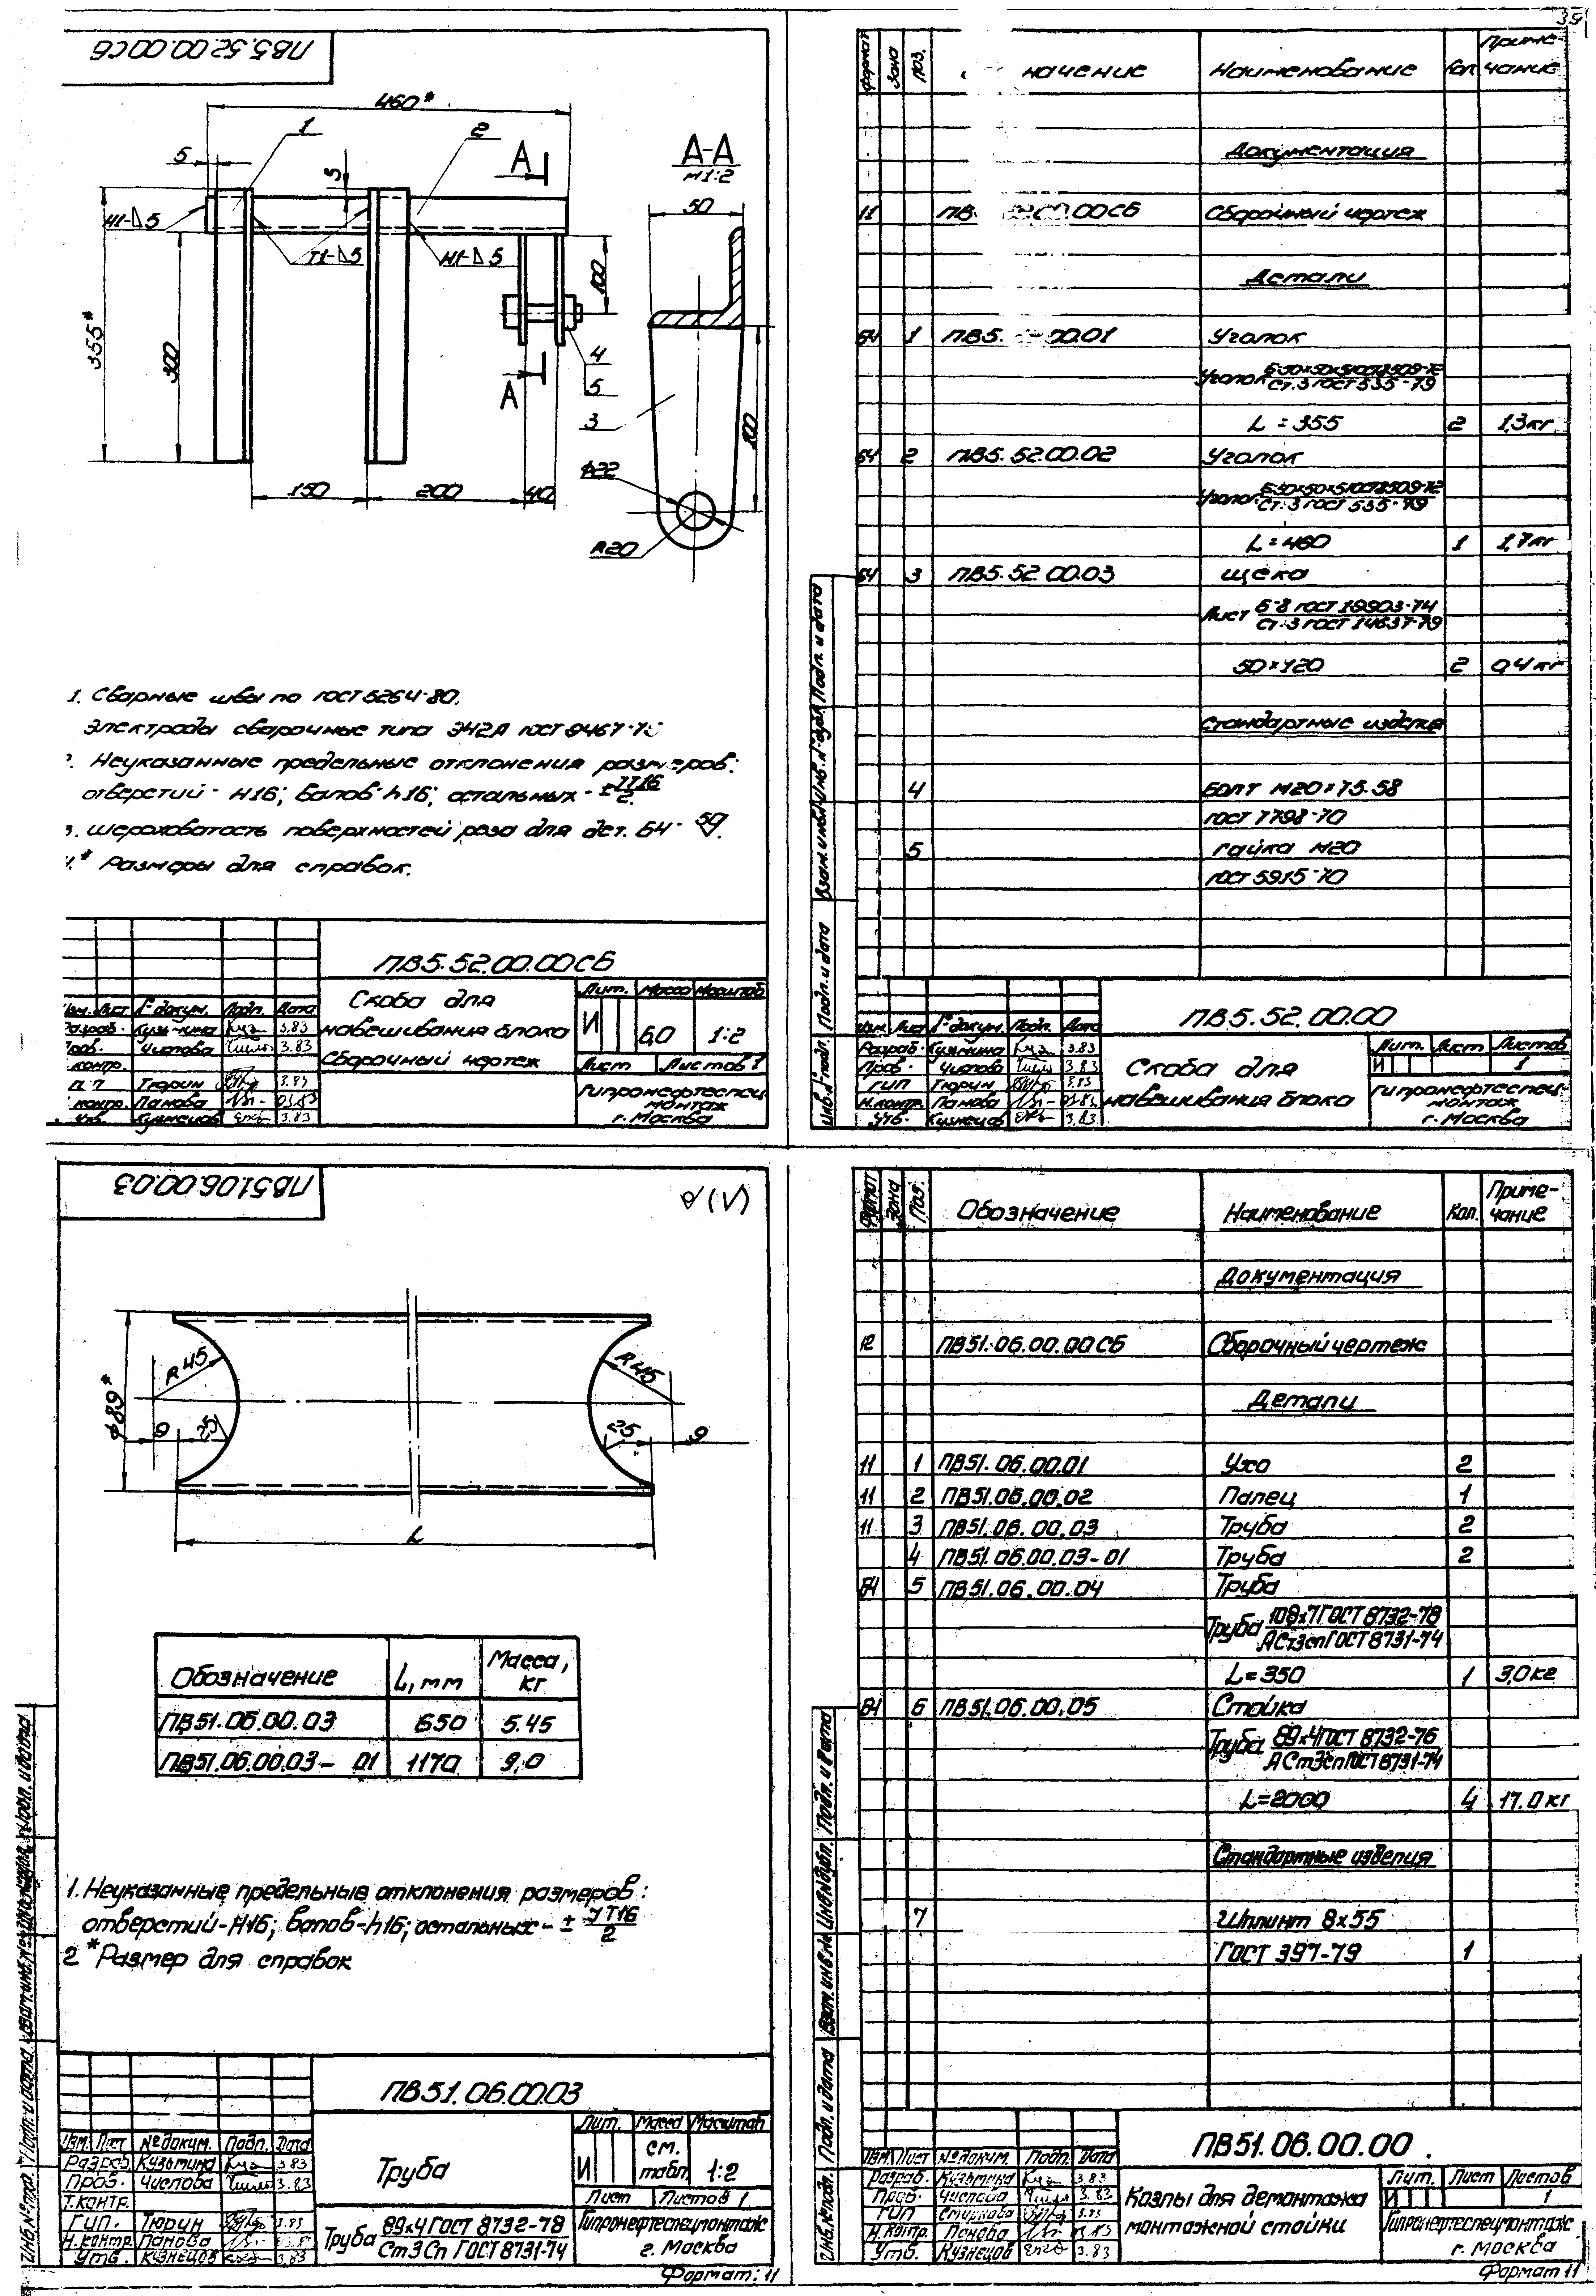 39
ПВ5.52.00.00СБ
460*
1
2
5
5
А
Н1-⊿5
Т1-⊿5
Н1-⊿5
355*
300
100
4
5
3
А
150
200
40
А-А
М1:2
50
100
ϕ22
R20
1. Сварные швы по ГОСТ 5264-80.
Электроды сварочные типа Э42А ГОСТ 9467-75
2. Неуказанные предельные отклонения размеров:
отверстий - H16; валов - h16; остальных - ± IT16/2
3. Шероховатость поверхностей реза для дет. БЧ - 50
4.* Размеры для справок.
ПВ5.52.00.00СБ
Скоба для
навешивания блока
Сборочный чертеж
Лит. Масса Масштаб
И 6,0 1:2
Лист Листов 1
Гипронефтеспец-
монтаж
г. Москва
Изм. Лист № докум. Подп. Дата
Разраб. Кузьмина 3.83
Пров. Чистова 3.83
контр.
Тюрин 3.83
контр. Панова
Утв. Кузнецов 3.83
Формат Зона Поз. начение Наименование Кол. Приме-
чание
Документация
11 ПВ 00.00СБ Сборочный чертеж
Детали
БЧ 1 ПВ5. 00.01 Уголок
Уголок Б-50×50×5 ГОСТ 8509-72
Ст.3 ГОСТ 535-79
L = 355 2 1,3 кг
БЧ 2 ПВ5.52.00.02 Уголок
Уголок Б-50×50×5 ГОСТ 8509-72
Ст.3 ГОСТ 535-79
L = 460 1 1,7 кг
БЧ 3 ПВ5.52.00.03 Щека
Лист Б-8 ГОСТ 19903-74
Ст.3 ГОСТ 14637-79
50×120 2 0,4 кг
Стандартные изделия
4 Болт М20×75.58
ГОСТ 7798-70
5 Гайка М20
ГОСТ 5915-70
Инв.№ подл. Подп. и дата Взам. инв.№ Инв.№ дубл. Подп. и дата
ПВ5.52.00.00
Скоба для
навешивания блока
Лит. Лист Листов
И 1
Гипронефтеспец-
монтаж
г. Москва
Изм. Лист № докум. Подп. Дата
Разраб. Кузьмина 3.83
Пров. Чистова 3.83
ГИП Тюрин 3.83
Н.контр. Панова
Утв. Кузнецов 3.83
ПВ51.06.00.03
(√)
R45
R45
ϕ89*
9
25
25
9
L
Обозначение L, мм Масса, кг
ПВ51.06.00.03 650 5.45
ПВ51.06.00.03-01 1170 9,0
1. Неуказанные предельные отклонения размеров:
отверстий - H16; валов - h16; остальных - ± IT16/2
2 * Размер для справок
ПВ51.06.00.03
Труба
Лит. Масса Масштаб
И см. табл. 1:2
Лист Листов 1
Труба 89×4 ГОСТ 8732-78
Ст3Сп ГОСТ 8731-74
Гипронефтеспецмонтаж
г. Москва
Изм. Лист № докум. Подп. Дата
Разраб. Кузьмина 3.83
Пров. Чистова 3.83
Т.контр.
ГИП. Тюрин 3.83
Н.контр. Панова
Утв. Кузнецов 3.83
Формат: 11
Формат Зона Поз. Обозначение Наименование Кол. Приме-
чание
Документация
12 ПВ51.06.00.00СБ Сборочный чертеж
Детали
11 1 ПВ51.06.00.01 Ухо 2
11 2 ПВ51.06.00.02 Палец 1
11 3 ПВ51.06.00.03 Труба 2
4 ПВ51.06.00.03-01 Труба 2
БЧ 5 ПВ51.06.00.04 Труба
Труба 108×7 ГОСТ 8732-78
А Ст3сп ГОСТ 8731-74
L=350 1 3,0 кг
БЧ 6 ПВ51.06.00.05 Стойка
Труба 89×4 ГОСТ 8732-76
А Ст3сп ГОСТ 8731-74
L=2000 4 17.0 кг
Стандартные изделия
7 Шплинт 8×55
ГОСТ 397-79 1
ПВ51.06.00.00
Козлы для демонтажа
монтажной стойки
Лит. Лист Листов
И 1
Гипронефтеспецмонтаж
г. Москва
Изм. Лист № докум. Подп. Дата
Разраб. Кузьмина 3.83
Пров. Чистова 3.83
ГИП Смирнова 3.83
Н.контр. Панова
Утв. Кузнецов 3.83
Формат 11